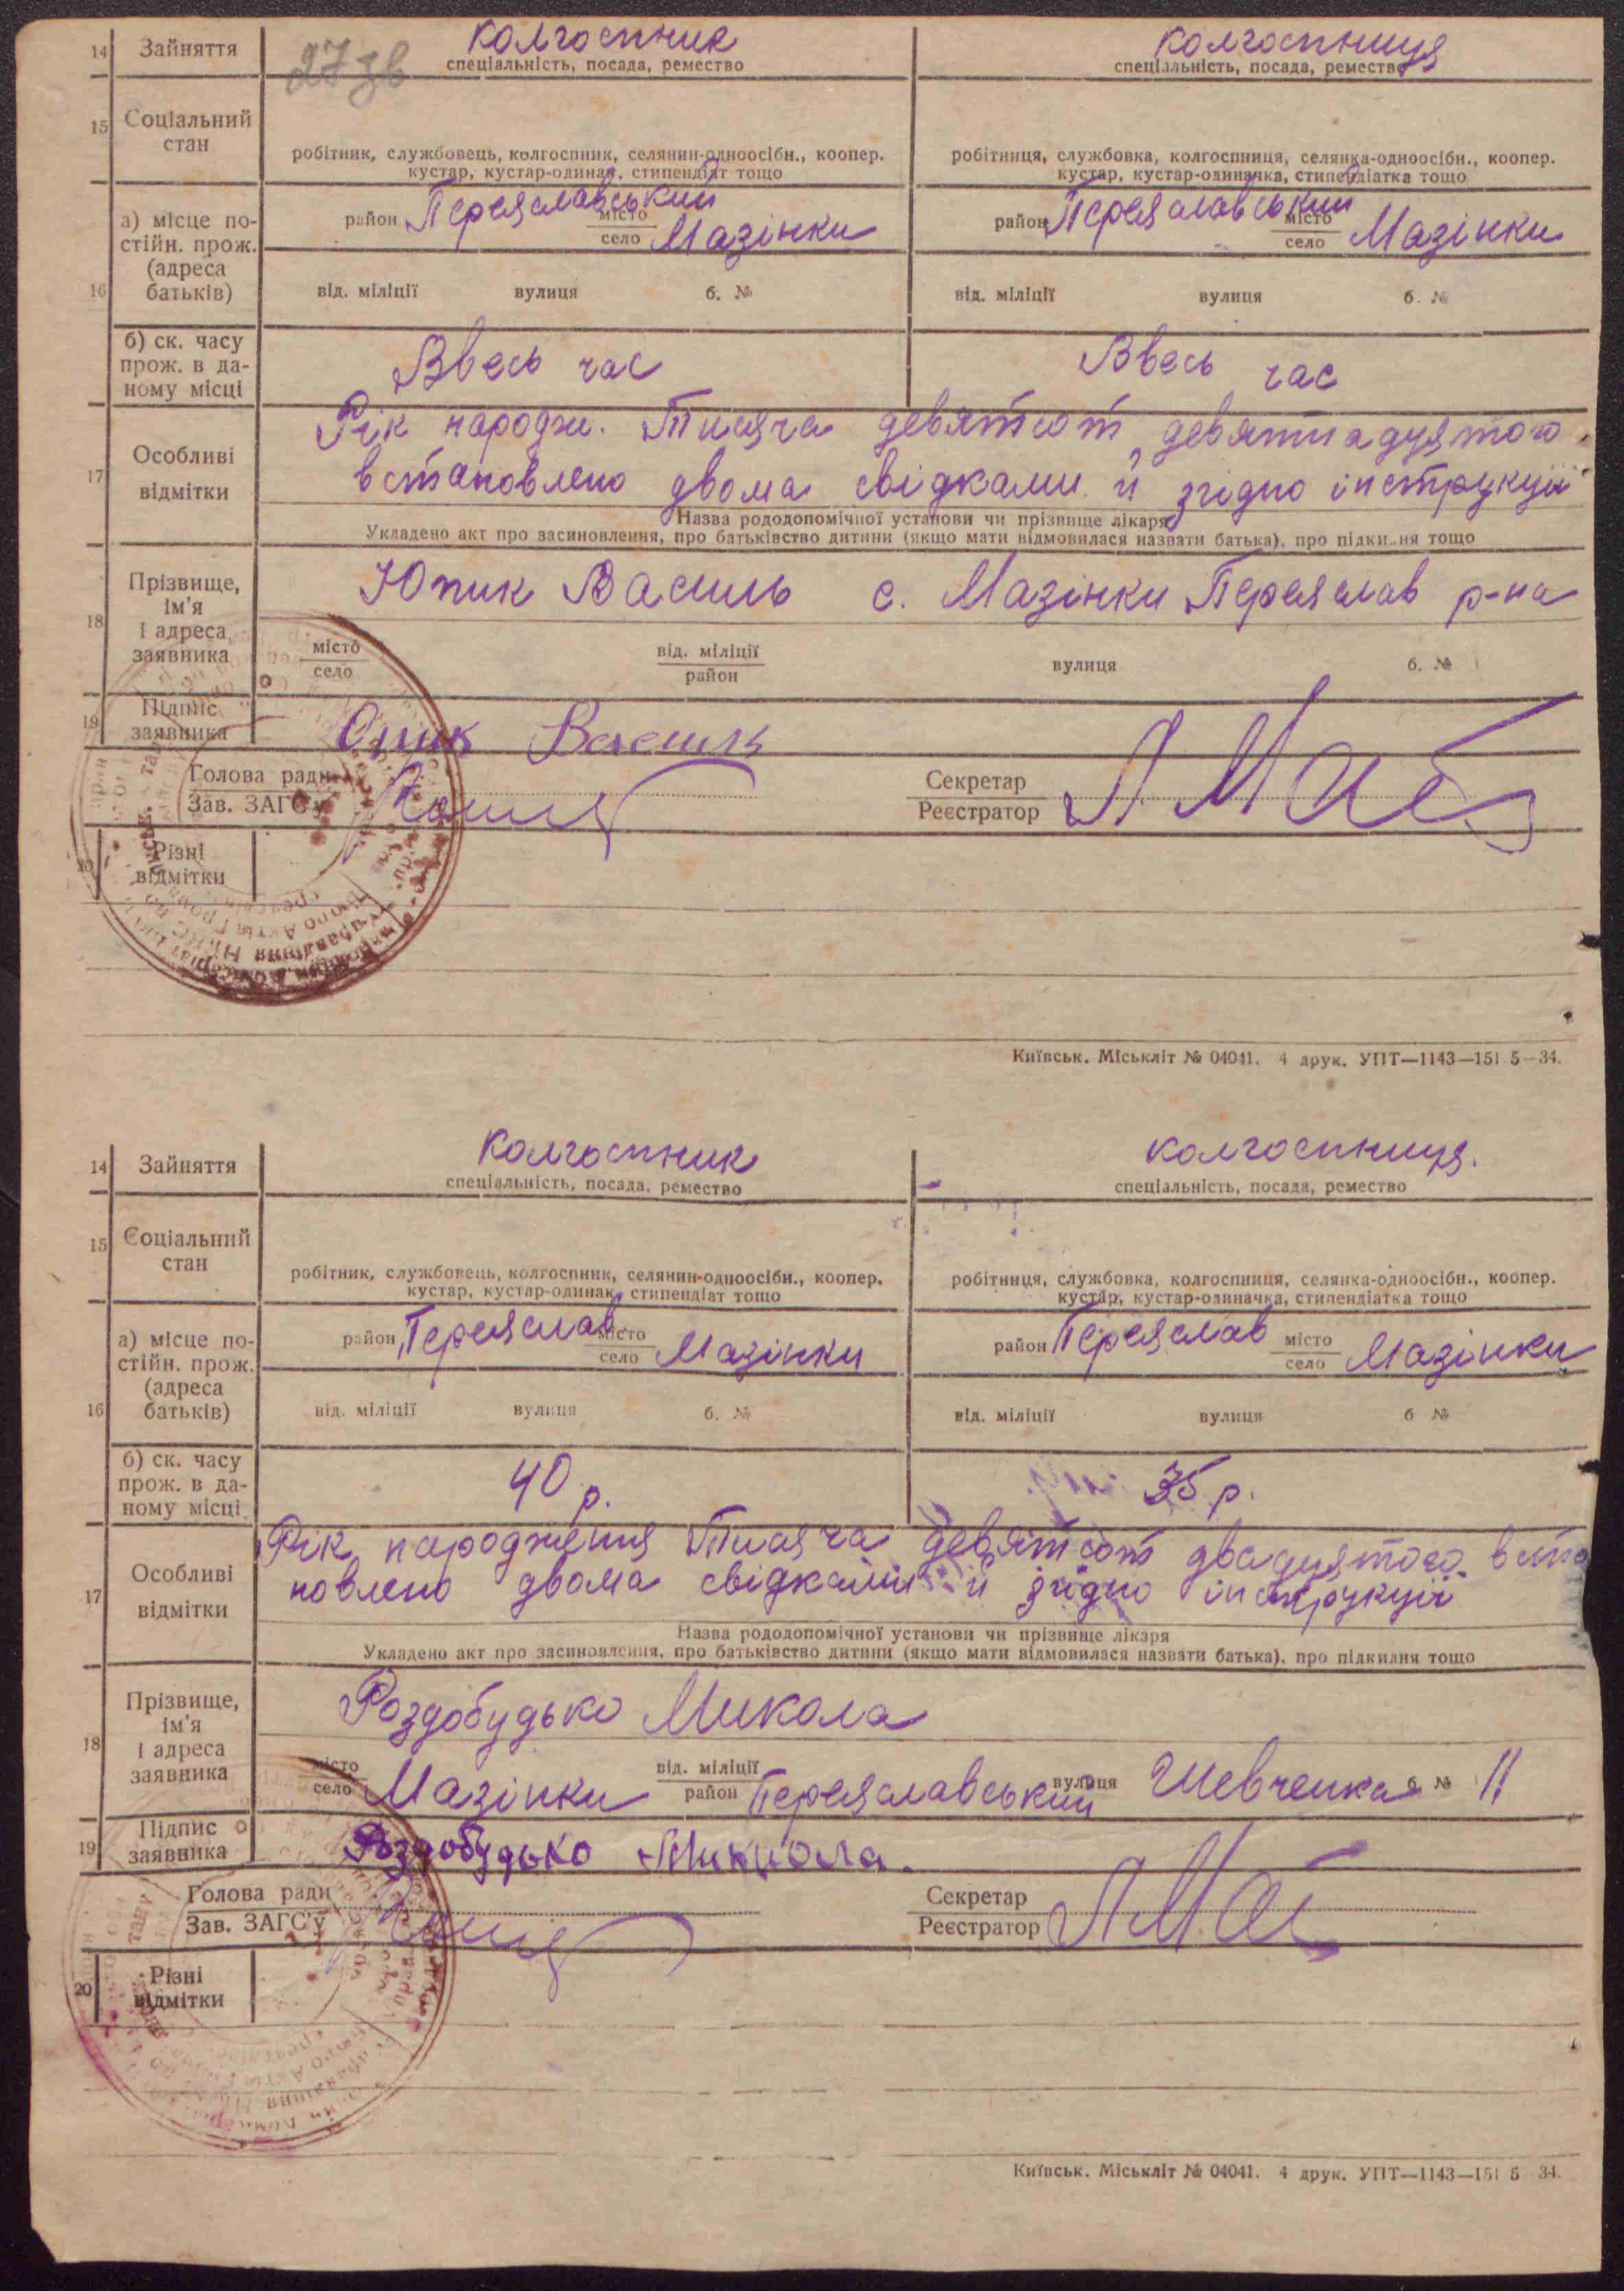 27 зв
14 Зайняття колгоспник колгоспниця
спеціальність, посада, ремество спеціальність, посада, ремество
15 Соціальний стан
робітник, службовець, колгоспник, селянин-одноосібн., коопер. робітниця, службовка, колгоспниця, селянка-одноосібн., коопер.
кустар, кустар-одинак, стипендіат тощо кустар, кустар-одиначка, стипендіатка тощо
16 а) місце постійн. прож. (адреса батьків)
район Переяславський місто село Мазінки район Переяславський місто село Мазінки
від. міліції вулиця б. № від. міліції вулиця б. №
б) ск. часу прож. в даному місці Ввесь час Ввесь час
17 Особливі відмітки
Рік народж. Тисяча девятсот девятнадцятого
встановлено двома свідками й згідно інструкції
Назва рододопомічної установи чи прізвище лікаря
Укладено акт про засиновлення, про батьківство дитини (якщо мати відмовилася назвати батька), про підкидня тощо
18 Прізвище, ім'я і адреса заявника
Юпик Василь с. Мазінки Переяслав р-на
місто село від. міліції район вулиця б. №
19 Підпис заявника Василь
Голова ради Зав. ЗАГС'у Секретар Реєстратор
20 Різні відмітки
Київськ. Міськліт № 04041. 4 друк. УПТ—1143—151 5—34.
14 Зайняття колгоспник колгоспниця.
спеціальність, посада, ремество спеціальність, посада, ремество
15 Соціальний стан
робітник, службовець, колгоспник, селянин-одноосібн., коопер. робітниця, службовка, колгоспниця, селянка-одноосібн., коопер.
кустар, кустар-одинак, стипендіат тощо кустар, кустар-одиначка, стипендіатка тощо
16 а) місце постійн. прож. (адреса батьків)
район Переяслав місто село Мазінки район Переяслав місто село Мазінки
від. міліції вулиця б. № від. міліції вулиця б №
б) ск. часу прож. в даному місці 40 р. 35 р.
17 Особливі відмітки
Рік народження Тисяча девятсот двадцятого вста
новлено двома свідками й згідно інструкції
Назва рододопомічної установи чи прізвище лікаря
Укладено акт про засиновлення, про батьківство дитини (якщо мати відмовилася назвати батька), про підкидня тощо
18 Прізвище, ім'я і адреса заявника
Роздобудько Микола
місто село Мазінки від. міліції район Переяславський вулиця Шевченка б. № 11
19 Підпис заявника Роздобудько Микола.
Голова ради Зав. ЗАГС'у Секретар Реєстратор
20 Різні відмітки
Київськ. Міськліт № 04041. 4 друк. УПТ—1143—151 5—34.